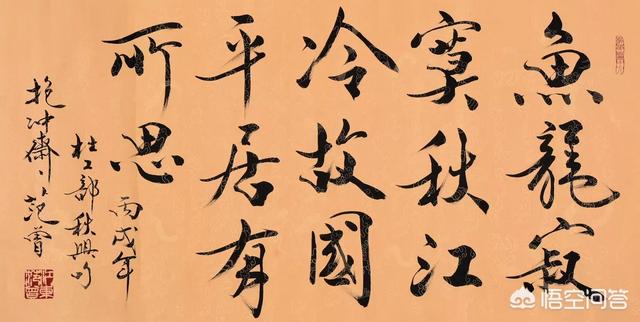 魚龍寂
寞秋江
冷故國
平居有
所思
丙戌年
杜工部秋興句
抱冲齋主范曾
江東范曾
悟空问答